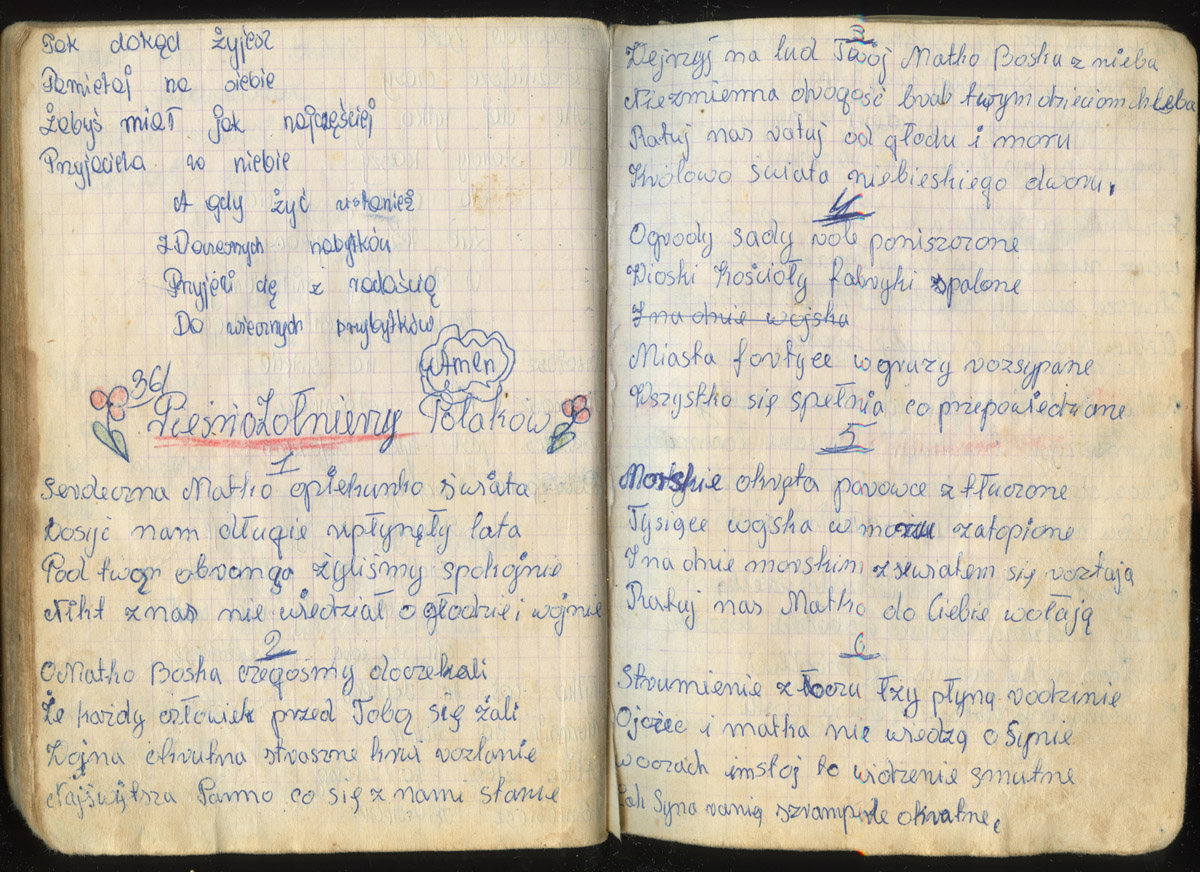 Tak dokąd żyjesz
Pamietaj na siebie
Żebyś miał jak najczęściej
Przyjaciela w niebie
A gdy żyć ustaniesz
Z Doczesnych nabytków
Przyjęli cię z radością
Do wiecznych przybytków
Amen
36/
Pieśnio Żołnierzy Polaków
1
Serdeczna Matko opiekunko świata
Dosyć nam długie upłynęły lata
Pod twą obroną żyliśmy spokojnie
Nikt z nas nie wiedział o głodzie i wojnie
2
O Matko Boska czegośmy doczekali
Że każdy człowiek przed Tobą się żali
Wojna okrutna straszne krwi rozlanie
Najświętsza Panno co się z nami stanie
3
Wejrzyj na lud Twój Matko Boska z nieba
Niezmierna drogość brak twym dzieciom chleba
Ratuj nas ratuj od głodu i moru
Królowo świata niebieskiego dworu,
4
Ogrody sady role poniszczone
Wioski Kościoły fabryki spalone
I na dnie wojska
Miasta fortyce w gruzy rozsypane
Wszystko się spełnia co przepowiedziane
5
Morskie okręta parowce z tłuczone
Tysiące wojska w morzu zatopione
I na dnie morskim z światem się rozstają
Ratuj nas Matko do Ciebie wołają
6
Strumienie z oczu łzy płyną rodzinie
Ojciec i matka nie wiedzą o Synie
w oczach im stoj to widzenie smutne
Jak Syna ranią szrampnele okrutne,